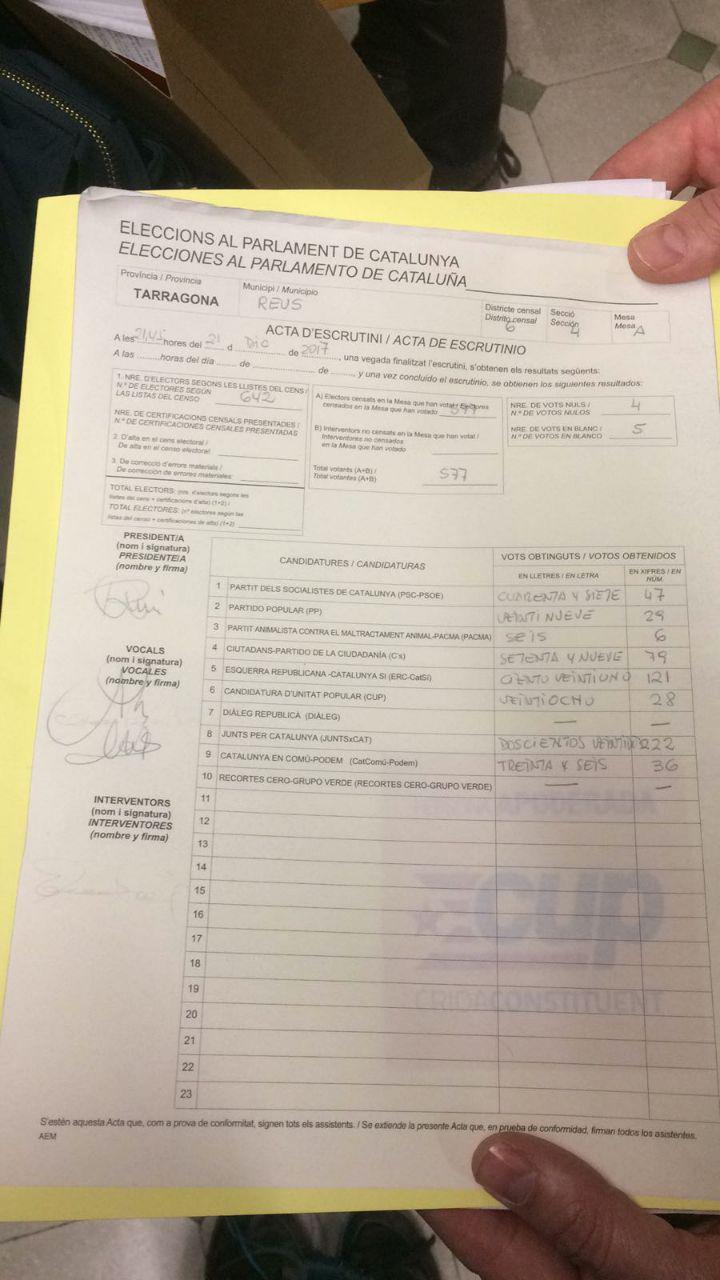 ELECCIONS AL PARLAMENT DE CATALUNYA
ELECCIONES AL PARLAMENTO DE CATALUÑA
Província / Provincia
TARRAGONA
Municipi / Municipio
REUS
Districte censal
Distrito censal
6
Secció
Sección
4
Mesa
Mesa A
ACTA D'ESCRUTINI / ACTA DE ESCRUTINIO
A les 21,45 hores del 21 d Dic de 2017, una vegada finalitzat l'escrutini, s'obtenen els resultats següents:
A las ........horas del día ........ de ........ de ........, y una vez concluido el escrutinio, se obtienen los siguientes resultados:
1. NRE. D'ELECTORS SEGONS LES LLISTES DEL CENS /
N.º DE ELECTORES SEGÚN
LAS LISTAS DEL CENSO 642
NRE. DE CERTIFICACIONS CENSALS PRESENTADES /
N.º DE CERTIFICACIONES CENSALES PRESENTADAS
2. D'alta en el cens electoral /
De alta en el censo electoral:
3. De correcció d'errors materials /
De corrección de errores materiales:
TOTAL ELECTORS: (nre. d'electors segons les
llistes del cens + certificacions d'alta) (1+2) /
TOTAL ELECTORES: (nº electores según las
listas del censo + certificaciones de alta) (1+2)
A) Electors censats en la Mesa que han votat / Electores
censados en la Mesa que han votado 577
B) Interventors no censats en la Mesa que han votat /
Interventores no censados
en la Mesa que han votado
Total votants (A+B) /
Total votantes (A+B) 577
NRE. DE VOTS NULS /
N.º DE VOTOS NULOS 4
NRE. DE VOTS EN BLANC /
N.º DE VOTOS EN BLANCO 5
PRESIDENT/A
(nom i signatura)
PRESIDENTE/A
(nombre y firma)
VOCALS
(nom i signatura)
VOCALES
(nombre y firma)
INTERVENTORS
(nom i signatura)
INTERVENTORES
(nombre y firma)
CANDIDATURES / CANDIDATURAS
VOTS OBTINGUTS / VOTOS OBTENIDOS
EN LLETRES / EN LETRA
EN XIFRES / EN NÚM.
1 PARTIT DELS SOCIALISTES DE CATALUNYA (PSC-PSOE) CUARENTA Y SIETE 47
2 PARTIDO POPULAR (PP) VEINTI NUEVE 29
3 PARTIT ANIMALISTA CONTRA EL MALTRACTAMENT ANIMAL-PACMA (PACMA) SEIS 6
4 CIUTADANS-PARTIDO DE LA CIUDADANÍA (C's) SETENTA Y NUEVE 79
5 ESQUERRA REPUBLICANA -CATALUNYA SI (ERC-CatSí) CIENTO VEINTIUNO 121
6 CANDIDATURA D'UNITAT POPULAR (CUP) VEINTIOCHO 28
7 DIÀLEG REPUBLICÀ (DIÀLEG) — —
8 JUNTS PER CATALUNYA (JUNTSxCAT) DOSCIENTOS VEINTIDOS 222
9 CATALUNYA EN COMÚ-PODEM (CatComú-Podem) TREINTA Y SEIS 36
10 RECORTES CERO-GRUPO VERDE (RECORTES CERO-GRUPO VERDE) — —
11
12
13
14
15
16
17
18
19
20
21
22
23
APODERADA
cup
CRIDACONSTITUENT
S'estén aquesta Acta que, com a prova de conformitat, signen tots els assistents. / Se extiende la presente Acta que, en prueba de conformidad, firman todos los asistentes.
AEM